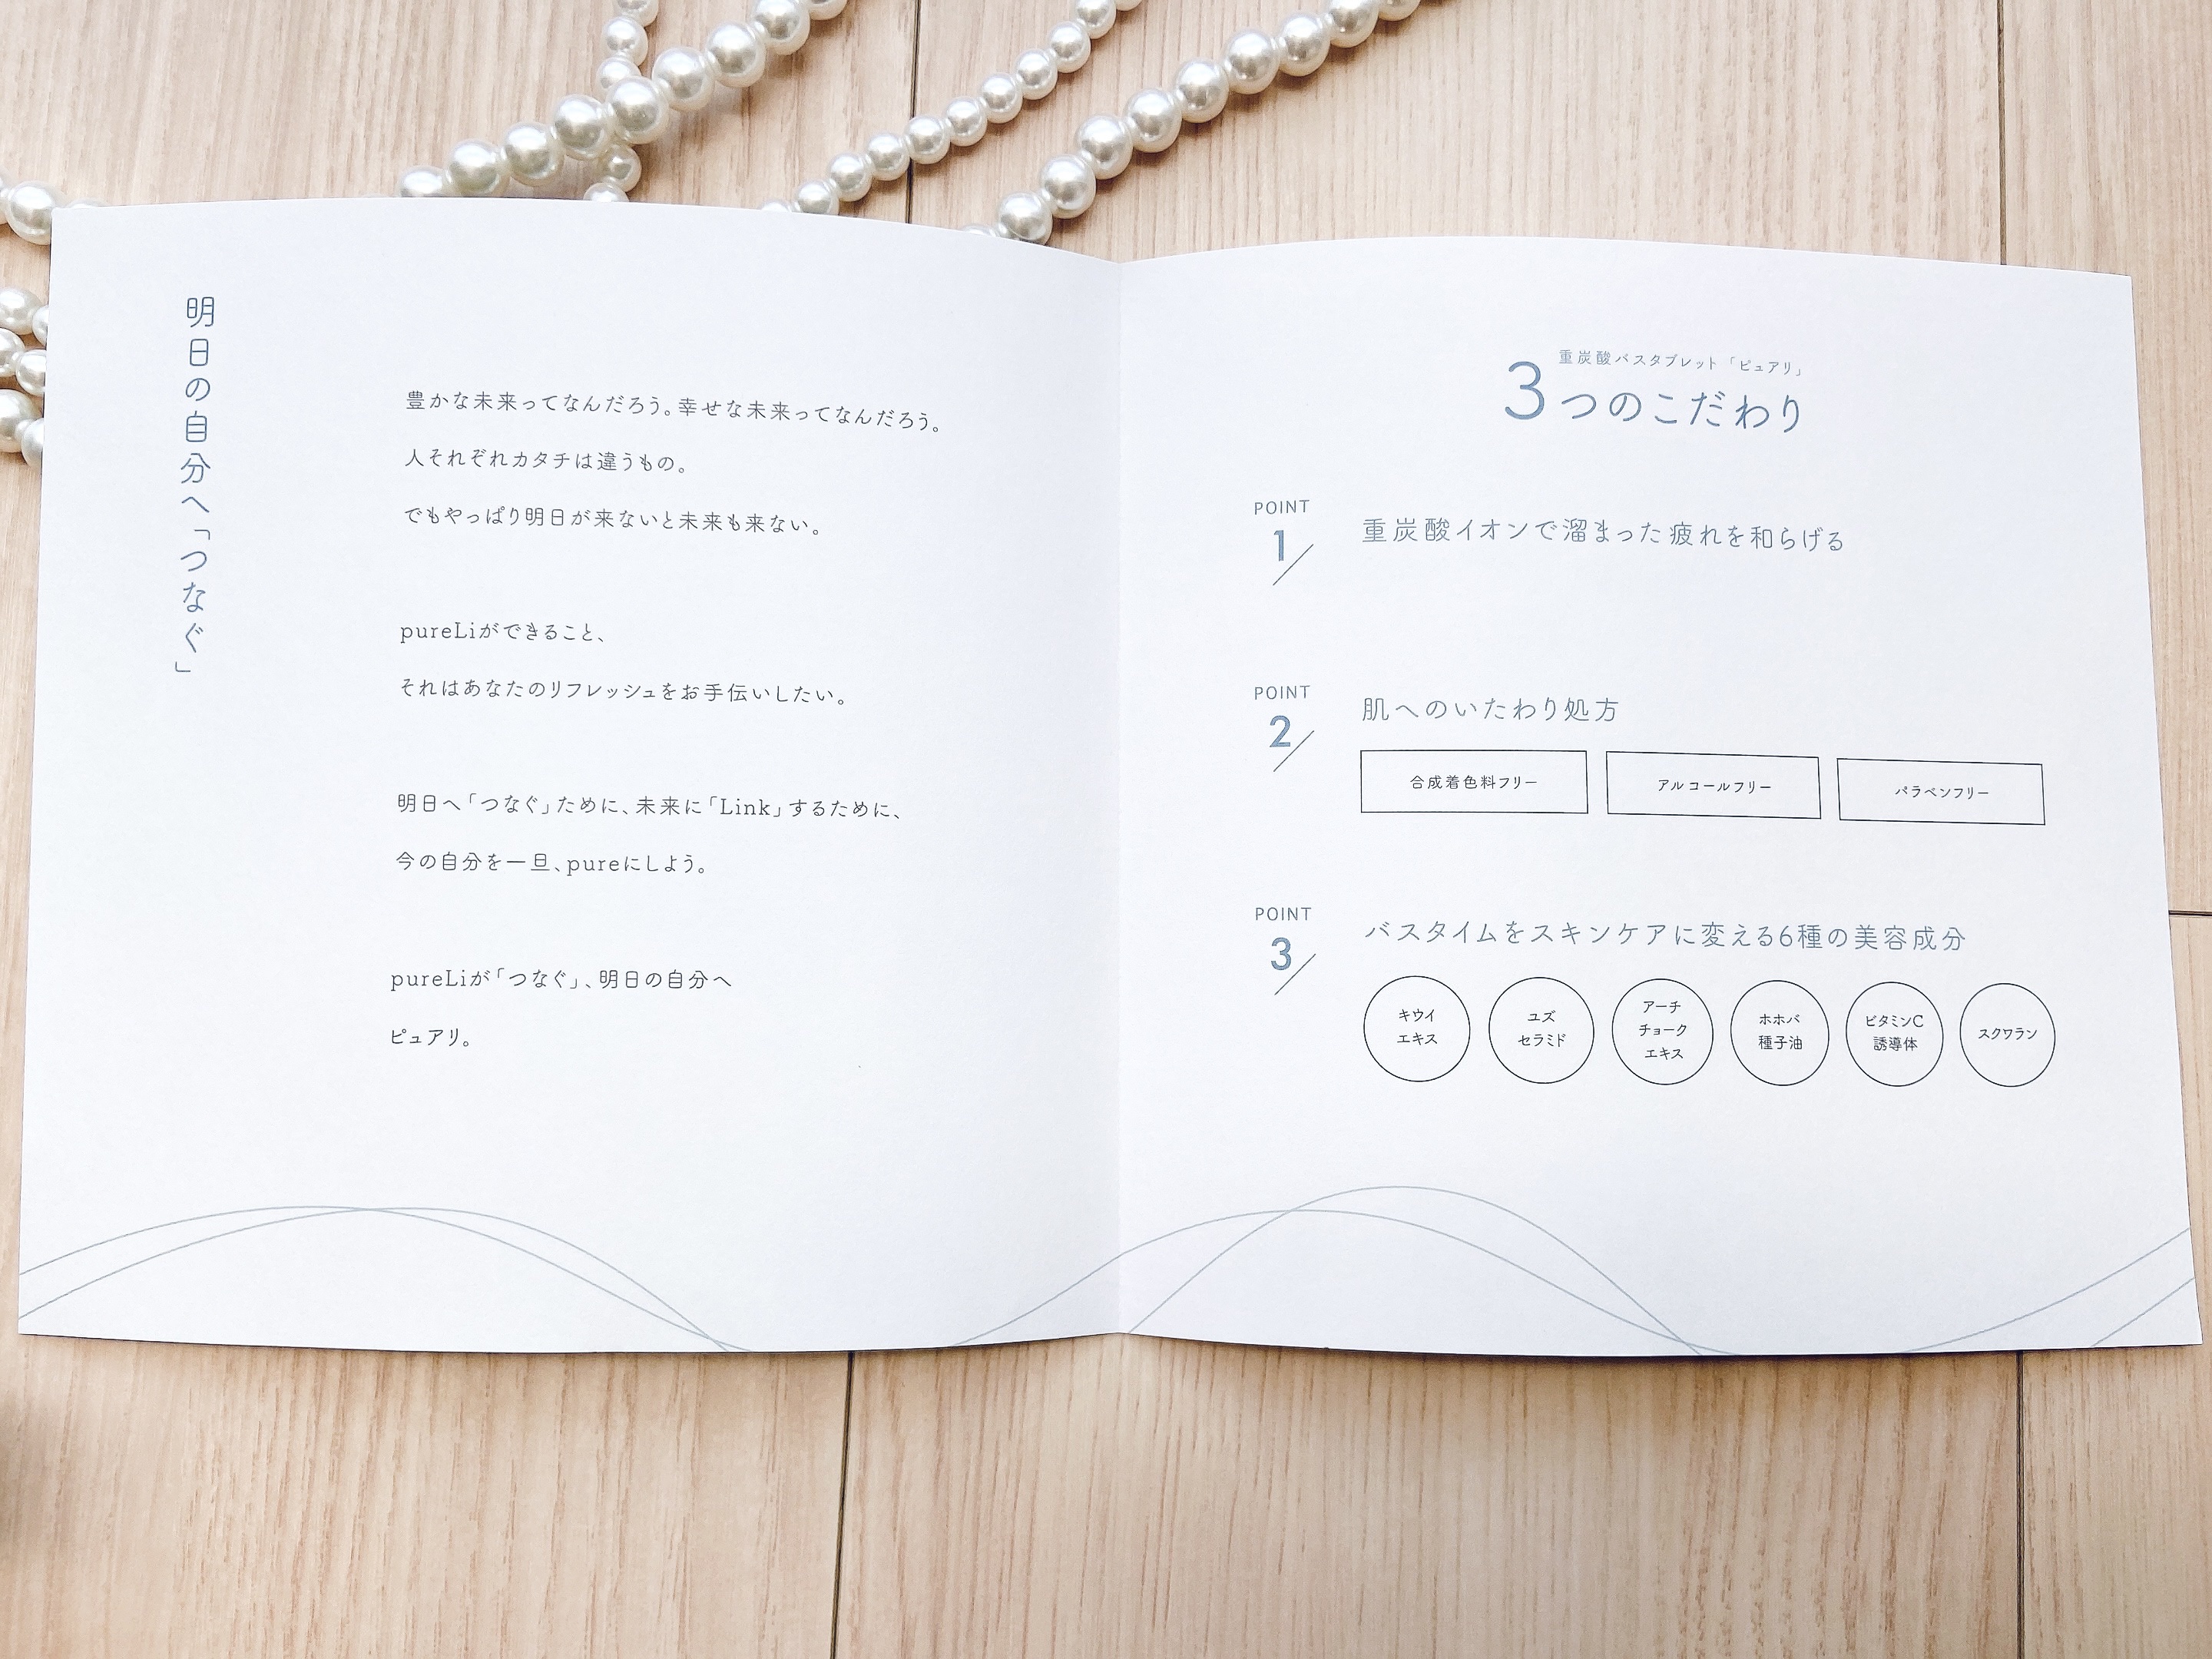 明日の自分へ「つなぐ」
豊かな未来ってなんだろう。幸せな未来ってなんだろう。
人それぞれカタチは違うもの。
でもやっぱり明日が来ないと未来も来ない。
pureLiができること、
それはあなたのリフレッシュをお手伝いしたい。
明日へ「つなぐ」ために、未来に「Link」するために、
今の自分を一旦、pureにしよう。
pureLiが「つなぐ」、明日の自分へ
ピュアリ。
重炭酸バスタブレット「ピュアリ」
3つのこだわり
POINT
1
重炭酸イオンで溜まった疲れを和らげる
POINT
2
肌へのいたわり処方
合成着色料フリー
アルコールフリー
パラベンフリー
POINT
3
バスタイムをスキンケアに変える6種の美容成分
キウイ
エキス
ユズ
セラミド
アーチ
チョーク
エキス
ホホバ
種子油
ビタミンC
誘導体
スクワラン